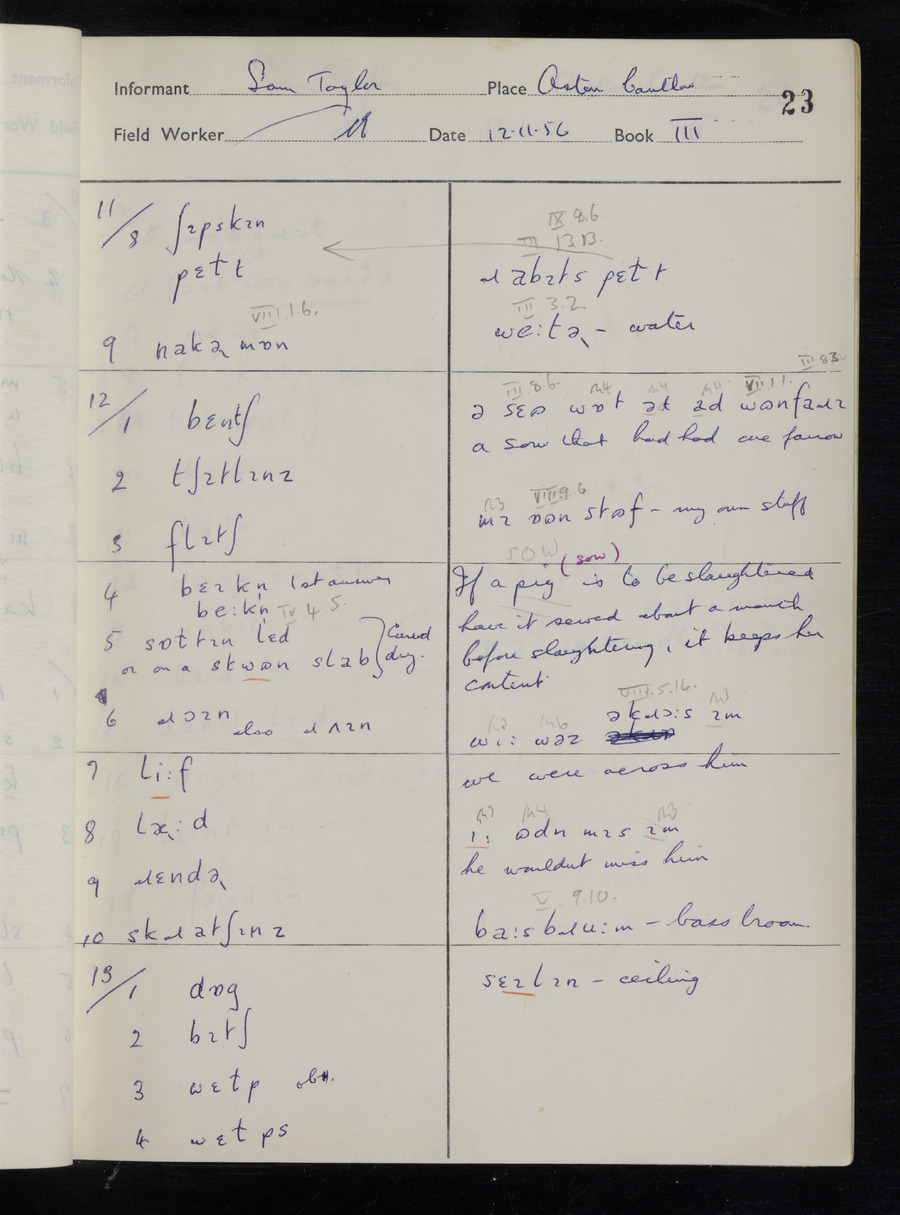 Informant Sam Taylor Place Aston Cantlow
23
Field Worker Date 12.11.56 Book III
11/8 ʃɪpskɪn
pɛtt
9 nakəɹ mɒn
VIII.1.6.
12/1 bɛntʃ
2 tʃɪtlɪnz
3 flɪtʃ
4 bɛɪkn̩ 1st answer
be:kn̩ IV 4.5.
5 sɒttɪn lɛd
or on a stwɒn slab
Cured dry.
6 ɹɔɪn also ɹʌɪn
7 li:f
8 læ:d
9 ɹɛndəɹ
10 skɹatʃɪnz
13/1 dɒg
2 bɪtʃ
3 wɛlp obs.
4 wɛlps
IX 8.6.
III 13.13.
ɹabɪts pɛlt
III 3.2.
we:təɹ – water
III 8.6. VII.1.1. III 8.3.
a sow that had had one farrow
VIII 9.6
mɪ ɒon stɒf – my own stuff
SOW (sow)
If a pig is to be slaughtered
have it served about a month
before slaughtering, it keeps her
content.
VIII.5.14.
wi: wəz əkɹɔ:s ɪm
we were across him
i: ɒdn mɪs ɪm
he wouldnt miss him
V 9.10.
ba:s bɹu:m – bass broom.
sɛɪlɪn – ceiling